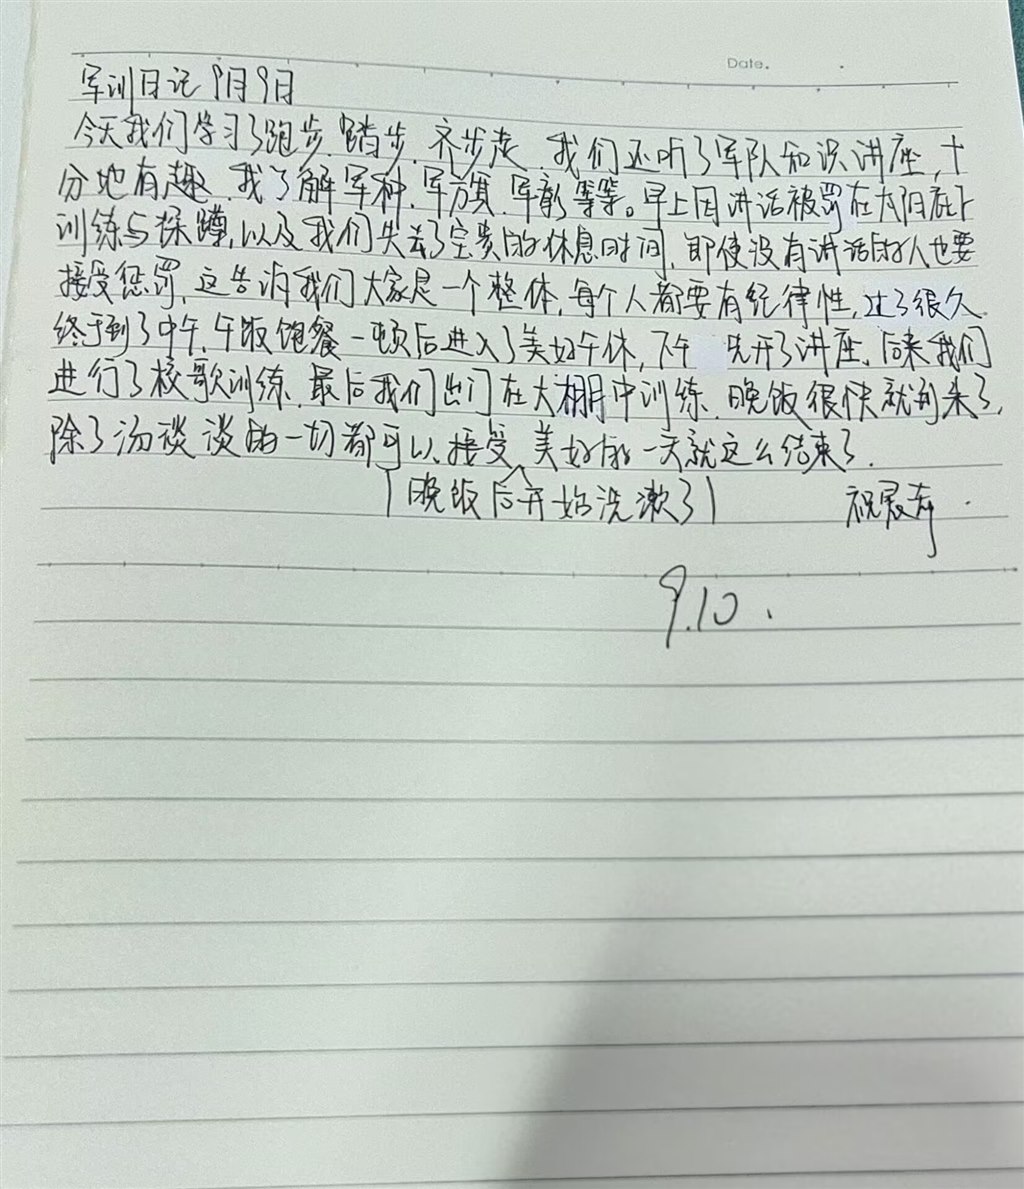 Date.
军训日记 9月9日
今天我们学习了跑步、踏步、齐步走、我们还听了军队知识讲座,十
分地有趣、我了解军种、军旗、军衔等等。早上因讲话被罚在太阳底下
训练与深蹲,以及我们失去了宝贵的休息时间,即使没有讲话的人也要
接受惩罚,这告诉我们大家是一个整体,每个人都要有纪律性,过了很久
终于到了中午,午饭饱餐一顿后进入了美好午休,下午 先开了讲座、后来我们
进行了校歌训练、最后我们出门在大棚中训练、晚饭很快就到来了,
除了汤谈谈的一切都可以接受 美好的一天就这么结束了.
晚饭后开始洗漱了
祝晨
9.10.